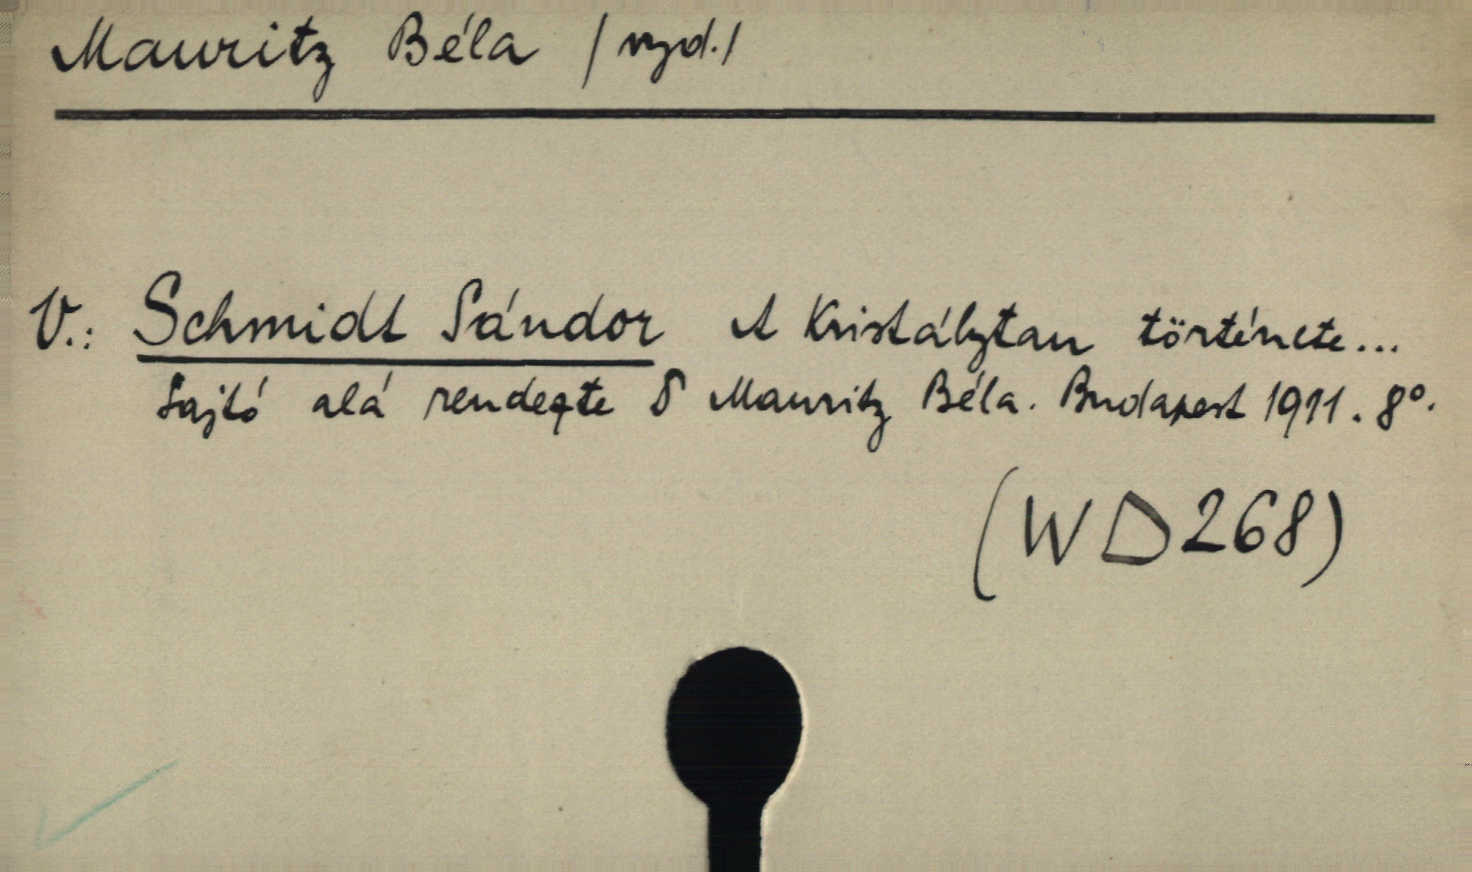 Mauritz Béla /vyd./
V.: Schmidt Sándor A Kristálytan története...
Sajtó alá rendezte Mauritz Béla. Budapest 1911. 8°.
(WD268)